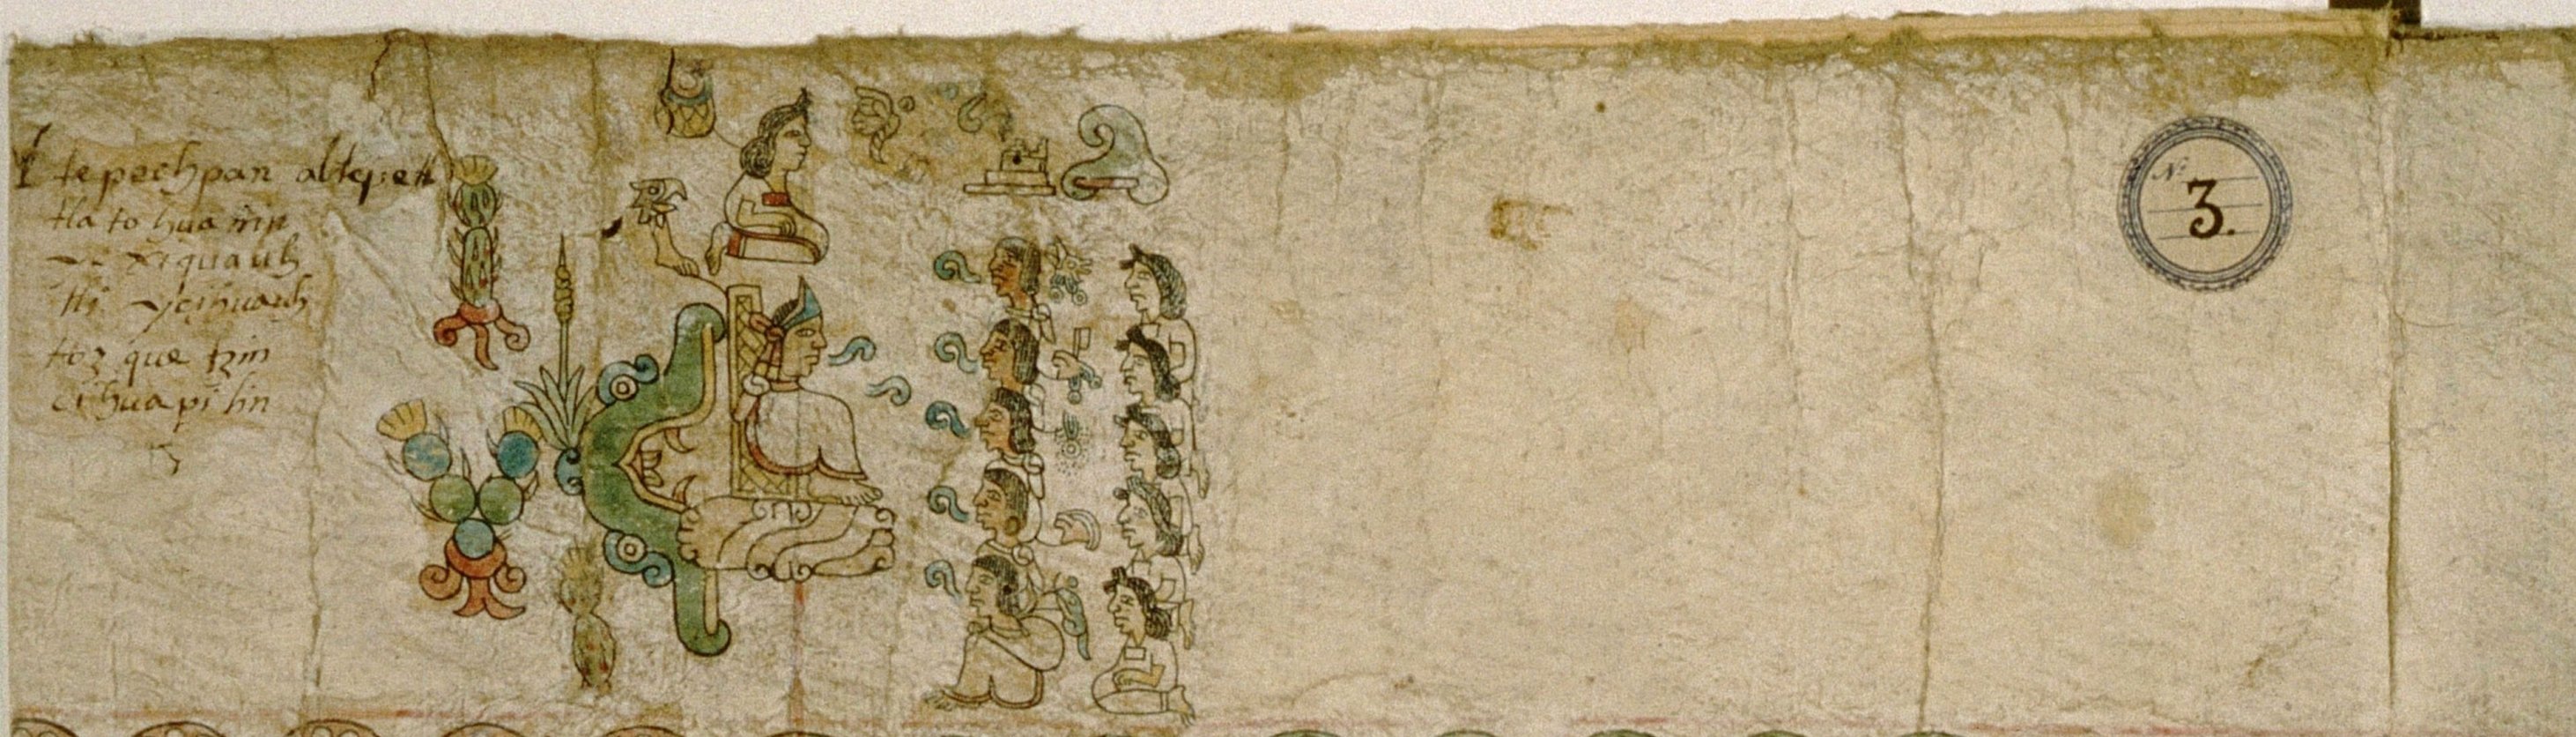 tepechpan altepetl
tla to hua nin
xi quauh
tli yci huauh
toz que tzin
ci hua pi lin
Nº
3.